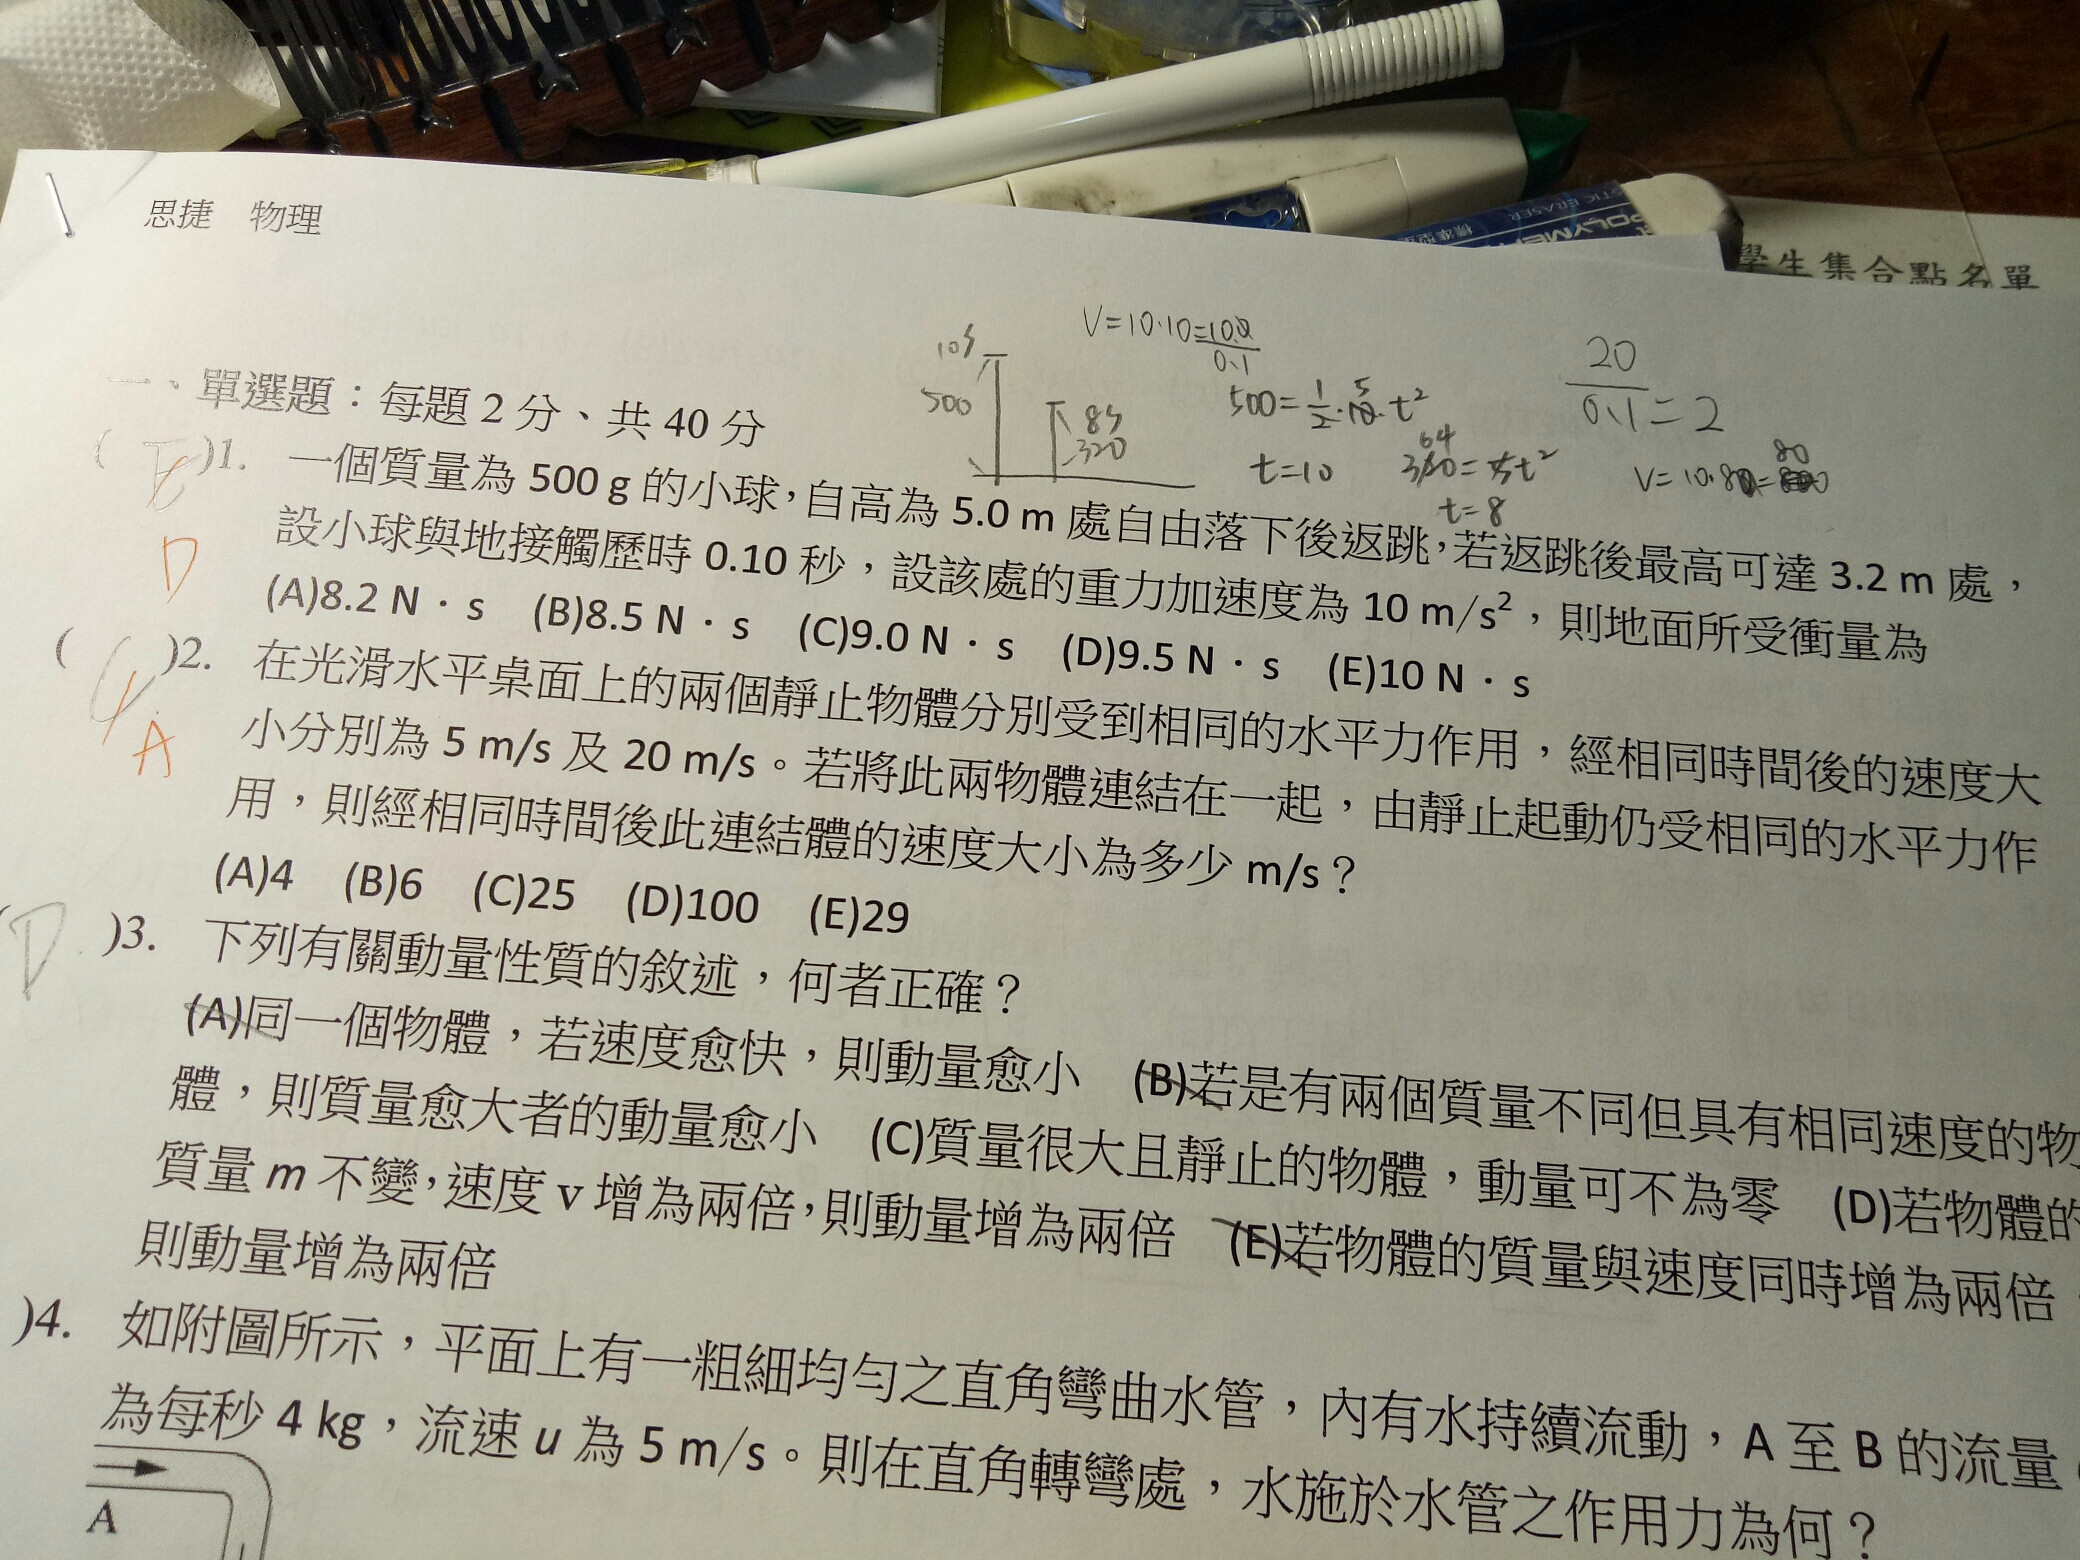 TIC ERASER
POLYME
標準型
學生集合點名單
思捷 物理
V=10·10=100
0.1
10s
500
8s
320
500=1/2·10·t²
5
t=10
64
320=5t²
t=8
20
0.1 =2
80
V=10·8
一、單選題：每題2分、共40分
(E)1. 一個質量為 500 g 的小球，自高為 5.0 m 處自由落下後返跳，若返跳後最高可達 3.2 m 處，
設小球與地接觸歷時 0.10 秒，設該處的重力加速度為 10 m/s²，則地面所受衝量為
D
(A)8.2 N．s (B)8.5 N．s (C)9.0 N．s (D)9.5 N．s (E)10 N．s
( )2. 在光滑水平桌面上的兩個靜止物體分別受到相同的水平力作用，經相同時間後的速度大
A
小分別為 5 m/s 及 20 m/s。若將此兩物體連結在一起，由靜止起動仍受相同的水平力作
用，則經相同時間後此連結體的速度大小為多少 m/s？
(A)4 (B)6 (C)25 (D)100 (E)29
(D)3. 下列有關動量性質的敘述，何者正確？
(A)同一個物體，若速度愈快，則動量愈小 (B)若是有兩個質量不同但具有相同速度的物
體，則質量愈大者的動量愈小 (C)質量很大且靜止的物體，動量可不為零 (D)若物體的
質量 m 不變，速度 v 增為兩倍，則動量增為兩倍 (E)若物體的質量與速度同時增為兩倍，
則動量增為兩倍
)4. 如附圖所示，平面上有一粗細均勻之直角彎曲水管，內有水持續流動，A 至 B 的流量
為每秒 4 kg，流速 u 為 5 m/s。則在直角轉彎處，水施於水管之作用力為何？
A